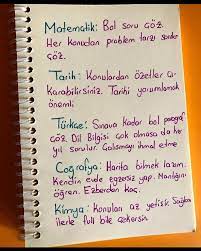 Matematik: Bol soru çöz.
Her konudan problem tarzı sorular
çöz.
Tarih: Konulardan özetler çı-
karabilirsiniz. Tarihi yorumlamak
önemli
Türkçe: Sınava kadar bol paragraf
çöz. Dil Bilgisi çok olmasa da her
yıl sorulur. Çalışmayı ihmal etme
Coğrafya: Harita bilmek lazım.
Kendin evde egzersiz yap. Mantığını
öğren. Ezberden kaç.
Kimya: Konuları az yetişik
ilerle full bile çekersin.